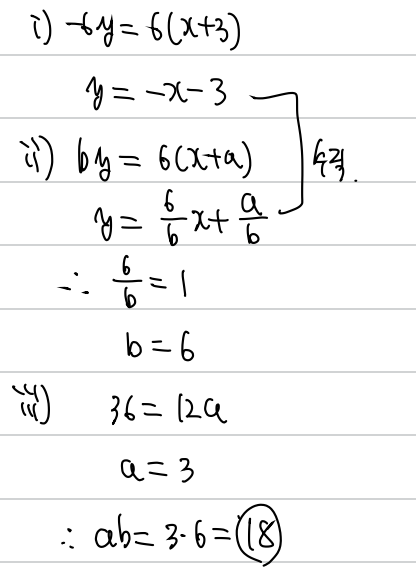 i) -6y = 6(x+3)
y = -x-3
ii) by = 6(x+a)
수직.
y = 6/b x + a/b
∴ 6/b = 1
b = 6
iii) 36 = 12a
a = 3
∴ ab = 3·6 = 18